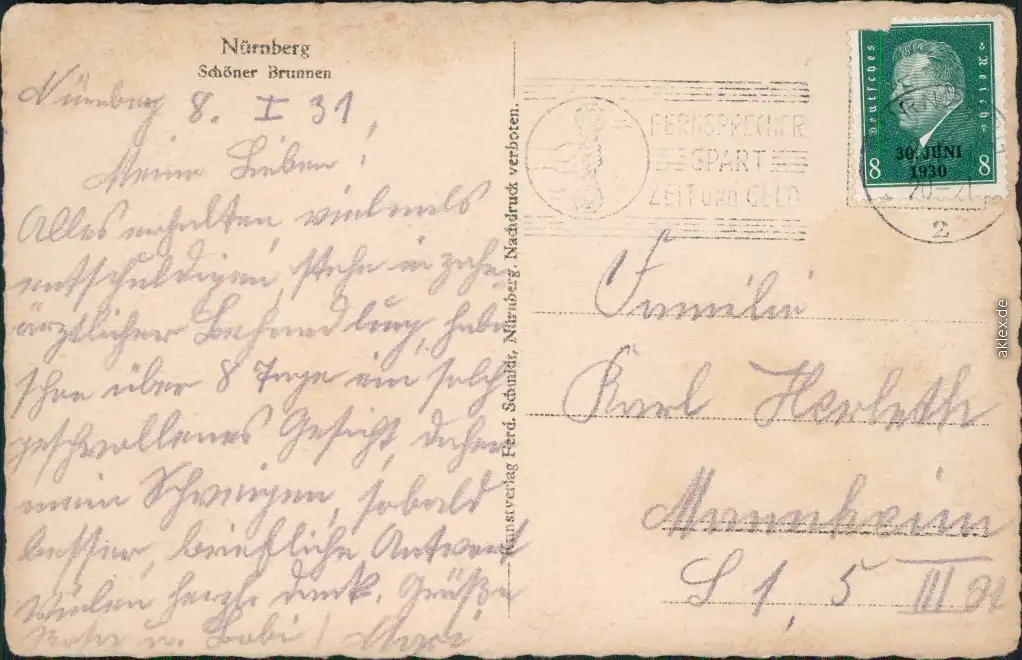 Nürnberg
Schöner Brunnen
Nürnberg 8. I 31,
Meine Lieben!
Alles erhalten, vielmals
entschuldigen, stehe in zahn-
ärztlicher Behandlung, habe
schon über 8 Tage ein solch
geschwollenes Gesicht, daher
mein Schweigen, sobald
besser, briefliche Antwort
Vielen herzl. Dank. Grüße
u. Bobi
Kunstverlag Ferd. Schmidt, Nürnberg. Nachdruck verboten.
FERNSPRECHER
SPART
ZEIT und GELD
Deutsches Reich
30. JUNI
1930
8 8
20-21
2
Familie
Karl Herleth
Mannheim
S 1, 5 III St
aklex.de